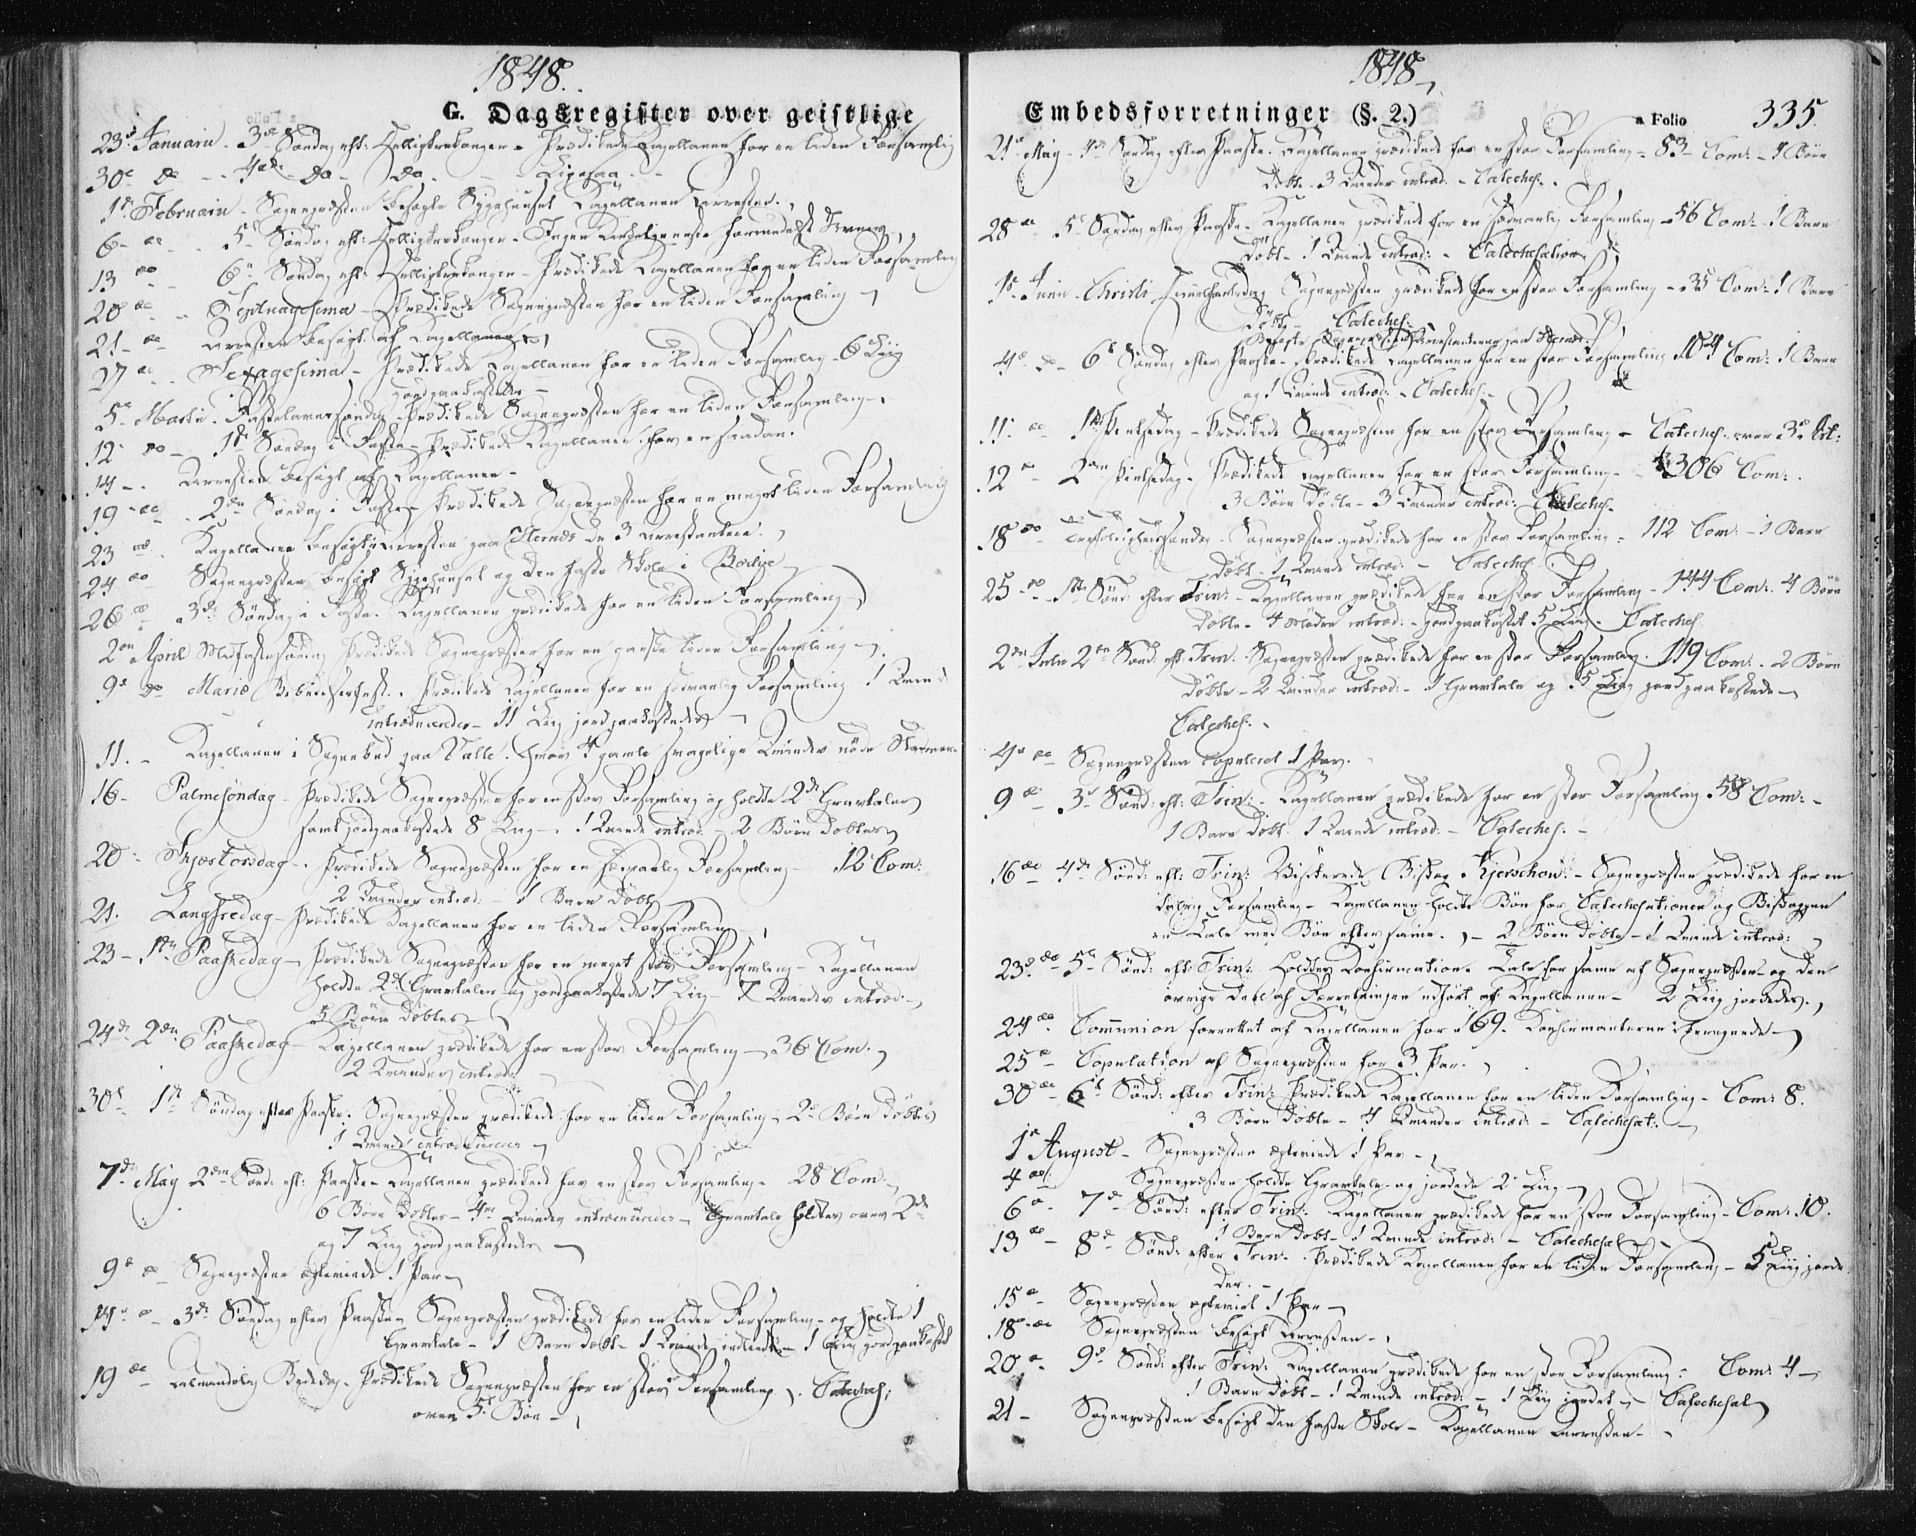 1848.
G. Dagsregister over geistlige
23de Januarii - 3die Søndag eft: Helligtrekonger - Prædikede Capellanen for en liden Forsamling
30te do - 4de do - do - Ligesaa.
1ste Februarii - Sognepræsten besøgte Sygehuset Capellanen Arresten.
6te do 5te Søndag eft: Helligtrekonger - Ingen Kirketjeneste formedelst
13 do 6te Søndag eft: Helligtrekonger - Prædikede Capellanen for en liden Forsamling
20 do Septuagesima - Prædikede Sognepræsten for en liden Forsamling
21 - do Arresten besøgt af Capellanen
27 do Sexagesima - Prædikede Capellanen for en liden Forsamling - 6 Liig
jordpaakastede -
5te Martii - Fastelavnssøndag - Prædikede Sognepræsten for en liden Forsamling -
12 do - 1ste Søndag i Faste - Prædikede Capellanen for en saadan.
14 - Arresten besøgt af Capellanen -
19 - do 2den Søndag i Faste - Prædikede Sognepræsten for en meget liden Forsamling
23 do Capellanen besøgte Arresten paa de 3 Arrestantere.
24 do Sognepræsten besøgt Sygehuset og den faste Skole i
26 do 3die Søndag i Faste - Capellanen prædikede for en liden Forsamling
2den April Midfastesøndag Prædikede Sognepræsten for en ganske liden Forsamling
9de do Mariæ Prædikede Capellanen for en sædvanlig Forsamling 1 Kvinde
introduceredes - 11 Liig jordpaakastedes
11. - Capellanen i Sognebud paa Valle. hvor 4 gamle svagelige Kvinder nøde
16 - Palmesøndag - Prædikede Sognepræsten for en stor Forsamling og holdte 2de Gravtaler
samt jordpaakastede 8 Liig - 1 Kvinde introd: - 2 Børn døbtes
20 - Skjærtorsdag - Prædikede Sognepræsten for en sædvanlig Forsamling - 12 Com:
2 Kvinder introd: - 1 Barn døbt
21. Langfredag - Prædikede Capellanen for en liden Forsamling -
23 - 1ste Paaskedag - Prædikede Sognepræsten for en meget stor Forsamling - Capellanen
holdte 2de Gravtaler og jordpaakastede 7 Liig - 7 Kvinder introd: -
5 Børn døbtes
24de 2den Paaskedag - Capellanen prædikede for en stor Forsamling - 36 Com.
2 Kvinder introd:
30te 1ste Søndag efter Paaske. Sognepræsten prædikede for en liden Forsamling - 2 Børn døbtes
1 Kvinde introduceres
7de May 2den Sønd: eft: Paaske - Capellanen prædikede for en stor Forsamling - 28 Com.
6 Børn døbtes - 4re Kvinder introduceredes - Gravtale holdtes over 2de
og 7 Liig jordpaakastede
9de do Sognepræsten ægteviede 1 Par
14de do 3die Søndag efter Paaske - Sognepræsten prædikede for en liden Forsamling - og holdte 1
Gravtale - 1 Barn døbt - 1 Kvinde indledt - 1 Liig jordpaakastet
19 do Almindelig Bededag - Prædikede Sognepræsten for en stor Forsamling. Cateches:
over 5te Bøn -
1848
Embedsforretninger (§. 2.)
a Folio 335.
21de May - 4de Søndag efter Paaske - Capellanen prædikede for en stor Forsamling - 83 Com: - 4 Børn
døbte - 3 Kvinder introd: - Cateches: -
28 do 5te Søndag efter Paaske - Capellanen prædikede for en sædvanlig Forsamling - 56 Com: 1 Barn
døbt - 1 Kvinde introd: - Catechesation
1ste Junii - Christi Himmelfartsdag Sognepræsten prædikede for en stor Forsamling - 35 Com: 1 Barn
døbt - Cateches:
Besøgte Sognepræsten Arrestanterne paa
4de do 6te Søndag efter Paaske - Prædikede Capellanen for en stor Forsamling 104 Com: 1 Barn
og 1 Kvinde introd: - Cateches: -
11. do 1ste Pintsedag - Prædikede Sognepræsten for en stor Forsamling - Cateches: over 3die Art:
12 do 2den Pintsedag - Prædikede Capellanen for en stor Forsamling - 306 Com:
3 Børn døbte - 3 Kvinder introd: Cateches:
18 do Trefoldighedssøndag - Sognepræsten prædikede for en stor Forsamling - 112 Com: - 1 Barn
døbt - 1 Kvinde introd: - Cateches:
25 do 1ste Sønd: efter Trin: - Capellanen prædikede for en stor Forsamling - 144 Com: 4 Børn
døbte - 4 Mødre introd: - jordpaakastet 5 Liig - Cateches
2den Julii 2den Sønd: eft: Trin: Sognepræsten prædikede for en stor Forsamling. 119 Com: 2 Børn
døbte - 2 Kvinder introd: - 1 Gravtale og 5 Liig jordpaakastede -
Cateches: -
4de do Sognepræsten Copuleret 1 Par.
9 do 3die Sønd: eft: Trin: - Capellanen prædikede for en stor Forsamling. 58 Com: -
1 Barn døbt 1 Kvinde introd: - Cateches: -
16 do 4de Sønd: eft: Trin: Visiterede Biskop Kjerschow: - Sognepræsten prædikede for en
talrig Forsamling - Capellanen holdte Bøn før Catechesationen og Biskoppen
en Tale med Bøn efter samme. - 2 Børn døbte - 1 Kvinde introd:
23de do 5te Sønd: eft: Trin: Holdtes Confirmation. Tale for samme af Sognepræsten - og den
øvrige Deel af Forretningen udført af Capellanen - 2 Liig jordedes.
24 do Communion forrettet af Capellanen for 69. Confirmanterne iberegnede -
25 do Copulation af Sognepræsten for 3 Par.
30 do 6te Sønd: efter Trin: Prædikede Capellanen for en liden Forsamling - Com: 8.
3 Børn døbte - 4 Kvinder introd: - Catechesat:
1ste August - Sognepræsten ægteviede 1 Par -
4 do: Sognepræsten holdte Gravtale og jordede 2 Liig -
6 do 7de Sønd: efter Trin: Capellanen prædikede for en stor Forsamling - Com: 10.
1 Barn døbt - 1 Kvinde introd: - Catechesat
13 do - 8de Sønd: efter Trin: Prædikede Capellanen for en liden Forsamling - 5 Liig jorde
des. -
15 do Sognepræsten ægteviet 1 Par -
18 do Sognepræsten besøgt Arresten -
20 do 9de Sønd: efter Trin: Capellanen prædikede for en stor Forsamling: Com: 4 -
1 Barn døbt - 1 Kvinde introd: - 1 Liig jordet - Catechesat
21 - Sognepræsten besøgt den faste Skole - Capellanen Arresten -